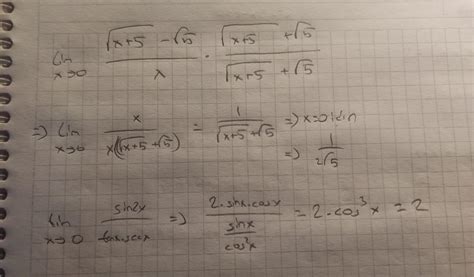 lim x→0 (√(x+5) - √5)/x · (√(x+5) + √5)/(√(x+5) + √5)
⇒ lim x→0 x/(x(√(x+5) + √5)) = 1/(√(x+5) + √5) ⇒ x=0 için
⇒ 1/(2√5)
lim x→0 sin2x/(tanx·secx) ⇒ (2·sinx·cosx)/(sinx/cos²x) = 2·cos³x = 2